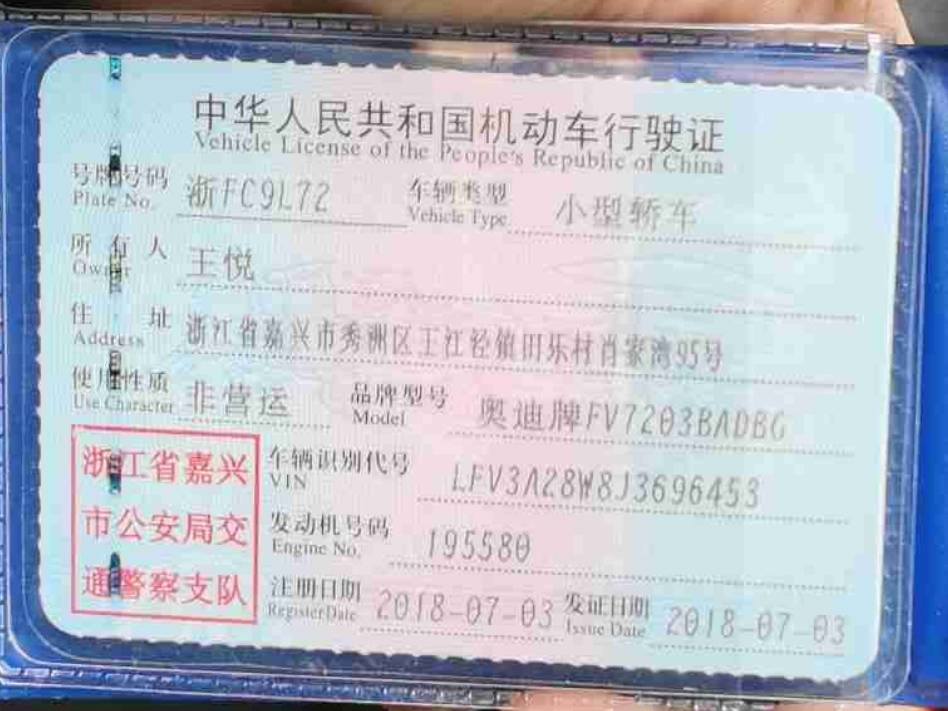 中华人民共和国机动车行驶证
Vehicle License of the People's Republic of China
号牌号码 浙FC9L72 车辆类型 小型轿车
Plate No. Vehicle Type
所有人 王悦
Owner
住址 浙江省嘉兴市秀洲区王江泾镇田乐村肖家湾95号
Address
使用性质 非营运 品牌型号 奥迪牌FV7203BADBG
Use Character Model
浙江省嘉兴
市公安局交
通警察支队
车辆识别代号 LFV3A28W8J3696453
VIN
发动机号码 195580
Engine No.
注册日期 2018-07-03 发证日期 2018-07-03
Register Date Issue Date